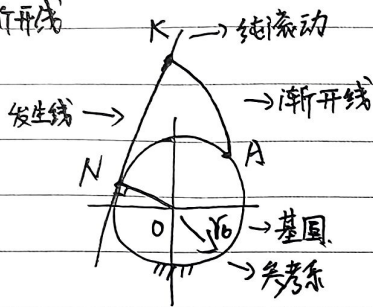 渐开线
K → 纯滚动
发生线 → → 渐开线
N A
O r₀ → 基圆.
→ 参考系